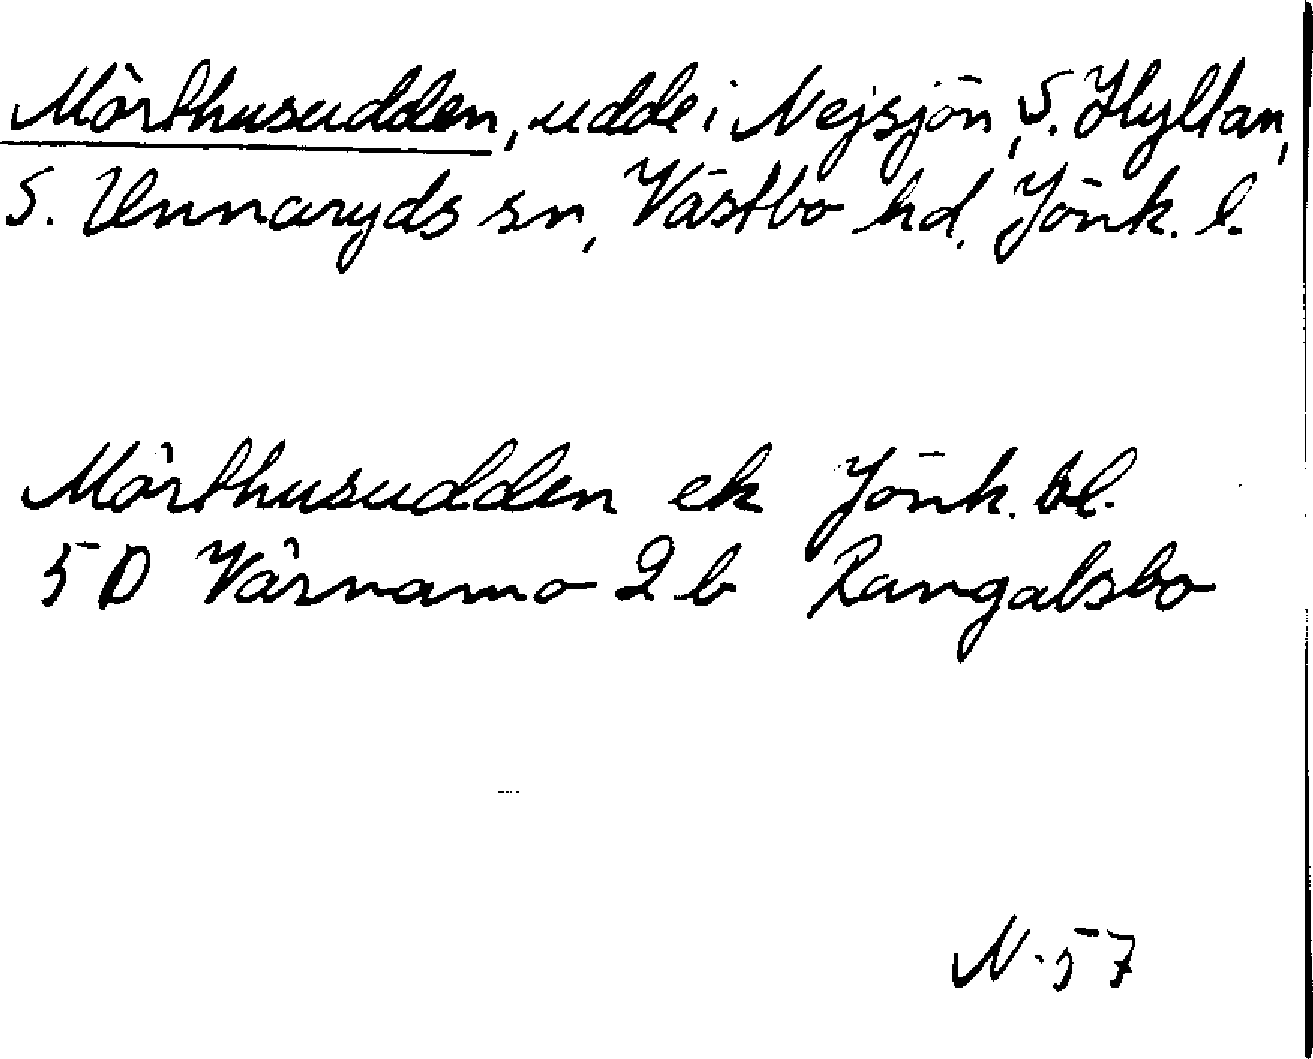 Mörthusudden, udde i Nejsjön, S. Hyltan,
S. Unnaryds sn, Västbo hd, Jönk. l.
Mörthusudden ek Jönk. bl.
5 D Värnamo 2 b Rangalsbo
N. 57